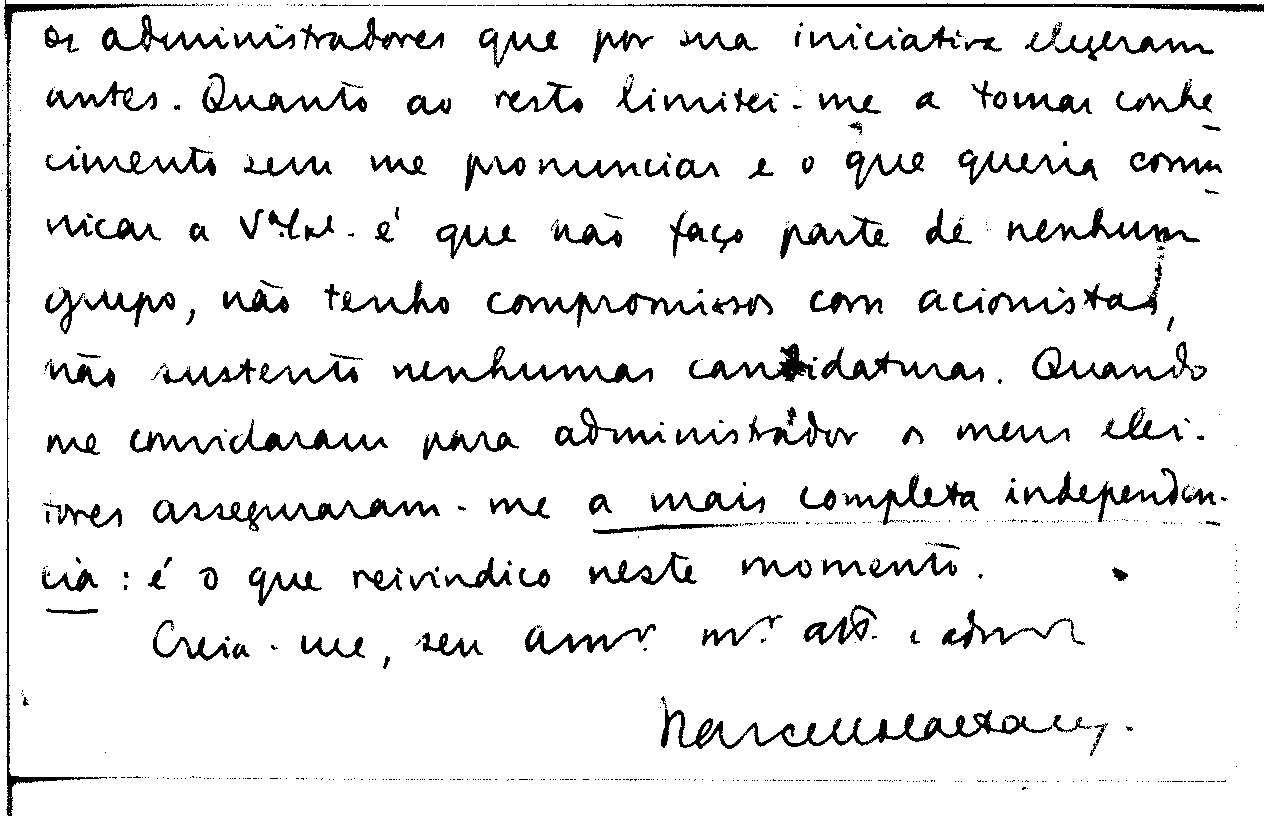 os administradores que por sua iniciativa elegeram
antes. Quanto ao resto limitei-me a tomar conhe-
cimento sem me pronunciar e o que queria comu-
nicar a V.ª Ex.ª é que não faço parte de nenhum
grupo, não tenho compromissos com acionistas,
não sustento nenhumas candidaturas. Quando
me convidaram para administrador os meus elei-
tores asseguraram-me a mais completa independên-
cia: é o que reivindico neste momento.
Creia-me, seu am.º m.to att.º e
Marcello Caetano.